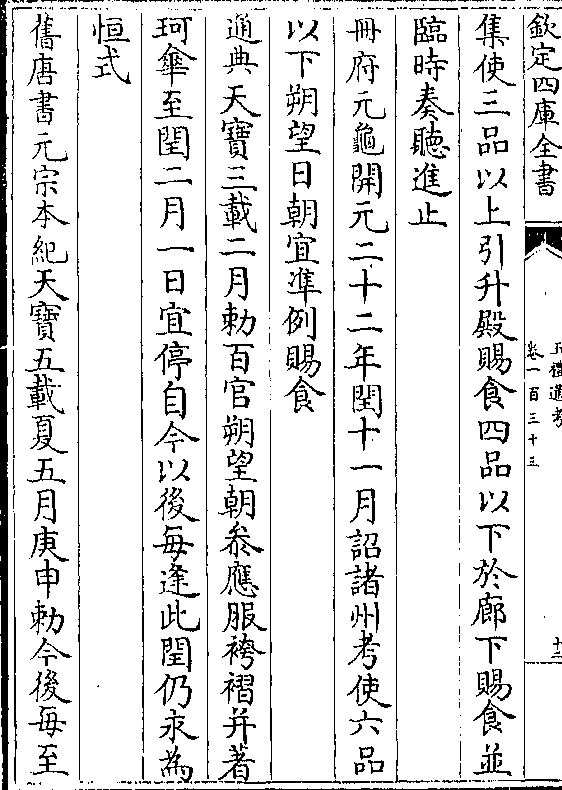 欽定四庫全書
五禮通考
卷一百三十三
十三
集使三品以上引升殿賜食四品以下於廊下賜食並
臨時奏聽進止
冊府元龜開元二十二年閏十一月詔諸州考使六品
以下朔望日朝宜準例賜食
通典天寶三載二月勅百官朔望朝叅應服袴褶并著
珂傘至閏二月一日宜停自今以後每逢此閏仍永為
恒式
舊唐書元宗本紀天寶五載夏五月庚申勅今後每至